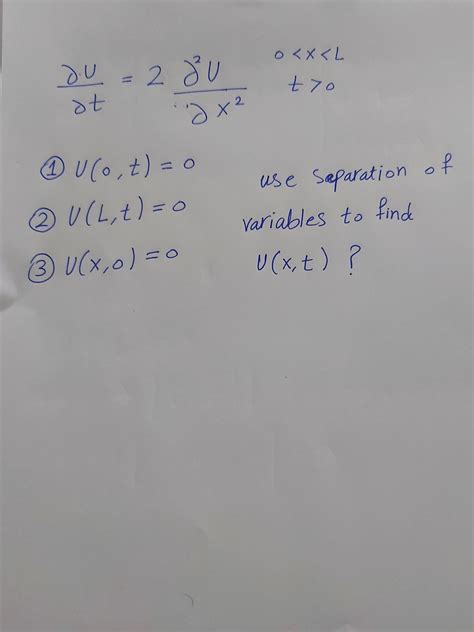 ∂U/∂t = 2 ∂²U/∂x²   0<x<L
t>0
① U(0,t)=0
② U(L,t)=0
③ U(x,0)=0
use separation of
variables to find
U(x,t) ?